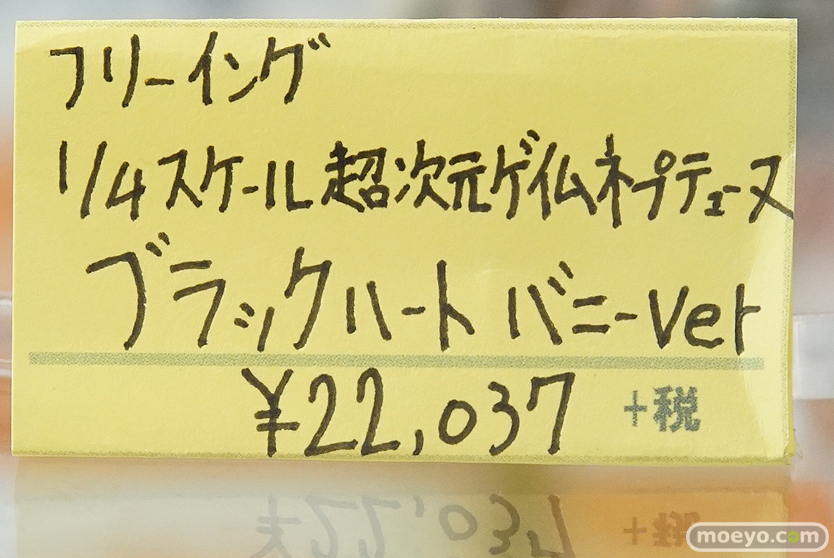 フリーイング
1/4スケール 超次元ゲイムネプテューヌ
ブラックハート バニーVer
¥22,037 +税
moeyo.com